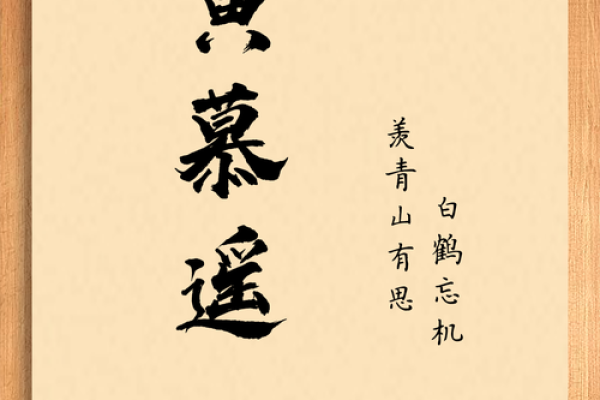 慕遥
羡青山有思
白鹤忘机